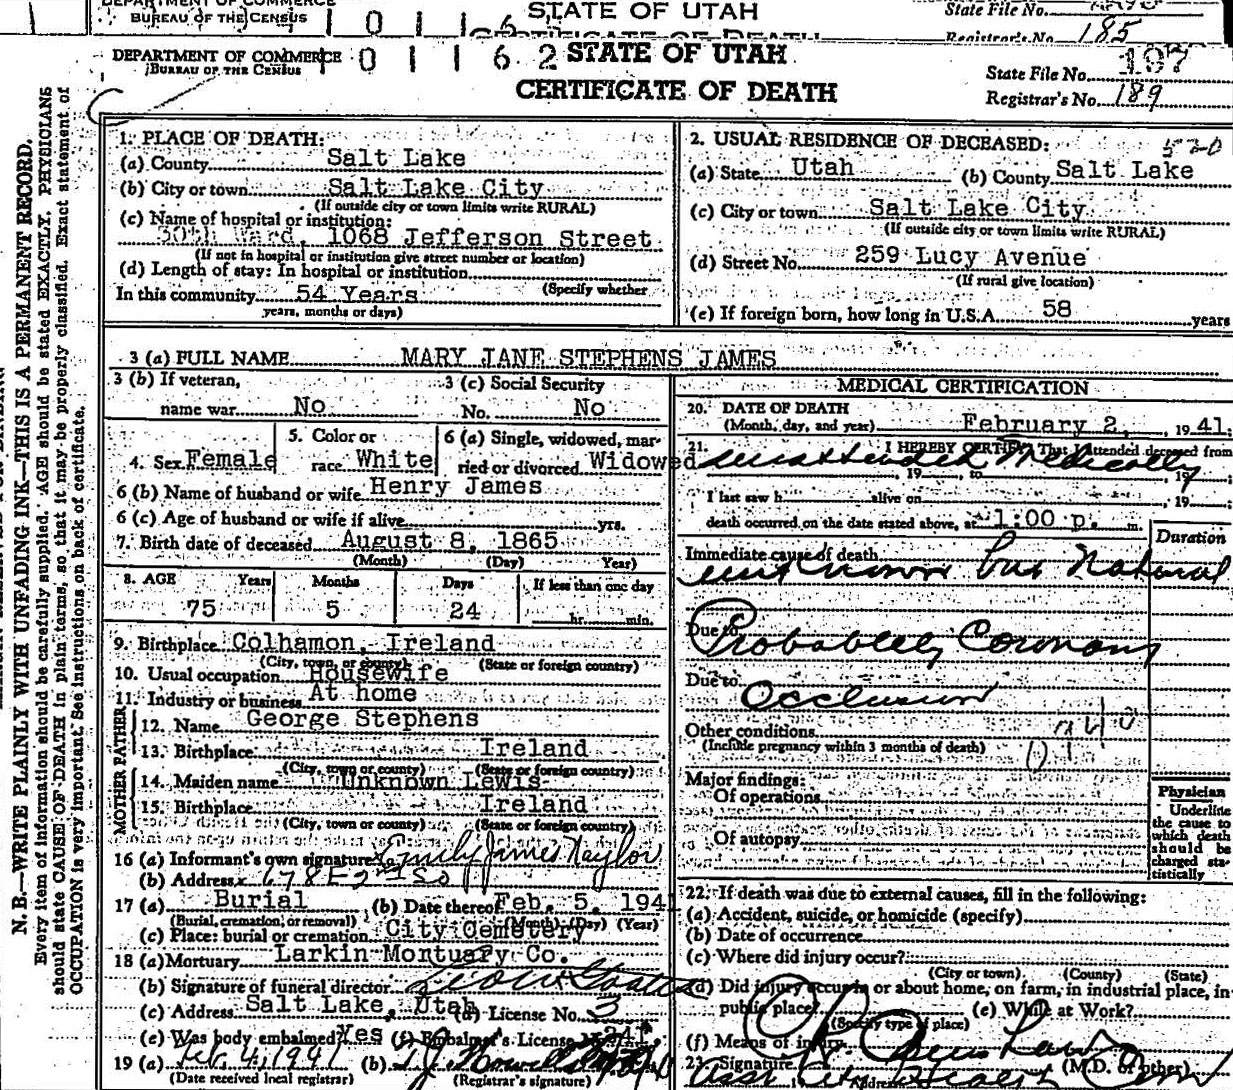 DEPARTMENT OF COMMERCE
BUREAU OF THE CENSUS
STATE OF UTAH
CERTIFICATE OF DEATH
State File No.
Registrar's No. 185
DEPARTMENT OF COMMERCE
BUREAU OF THE CENSUS
0 1 1 6 2
STATE OF UTAH
CERTIFICATE OF DEATH
State File No. 197
Registrar's No. 189
N. B.—WRITE PLAINLY WITH UNFADING INK—THIS IS A PERMANENT RECORD.
Every item of information should be carefully supplied. AGE should be stated EXACTLY. PHYSICIANS
should state CAUSE OF DEATH in plain terms, so that it may be properly classified. Exact statement of
OCCUPATION is very important. See instructions on back of certificate.
1. PLACE OF DEATH:
(a) County Salt Lake
(b) City or town Salt Lake City
(If outside city or town limits write RURAL)
(c) Name of hospital or institution:
Ward, 1068 Jefferson Street
(If not in hospital or institution give street number or location)
(d) Length of stay: In hospital or institution
(Specify whether
In this community 54 Years
years, months or days)
2. USUAL RESIDENCE OF DECEASED: 520
(a) State Utah (b) County Salt Lake
(c) City or town Salt Lake City
(If outside city or town limits write RURAL)
(d) Street No. 259 Lucy Avenue
(If rural give location)
(e) If foreign born, how long in U.S.A. 58 years
3 (a) FULL NAME MARY JANE STEPHENS JAMES
3 (b) If veteran,
name war No
3 (c) Social Security
No. No
4. Sex Female
5. Color or
race White
6 (a) Single, widowed, mar-
ried or divorced Widowed
6 (b) Name of husband or wife Henry James
6 (c) Age of husband or wife if alive yrs.
7. Birth date of deceased August 8, 1865
(Month) (Day) Year)
8. AGE Years Months Days If less than one day
75 5 24 hr. min.
9. Birthplace Colhamon, Ireland
(City, town, or county) (State or foreign country)
10. Usual occupation Housewife
11. Industry or business At home
FATHER
12. Name George Stephens
13. Birthplace Ireland
(City, town or county) (State or foreign country)
MOTHER
14. Maiden name Unknown Lewis
15. Birthplace Ireland
(City, town or county) (State or foreign country)
16 (a) Informant's own signature Emily James Naylor
(b) Address 678 E 2nd So
17 (a) Burial (b) Date thereof Feb. 5, 194
(Burial, cremation, or removal) (Month) (Day) (Year)
(c) Place: burial or cremation City Cemetery
18 (a) Mortuary Larkin Mortuary Co.
(b) Signature of funeral director
(c) Address Salt Lake, Utah (d) License No. 3
(e) Was body embalmed? Yes (f) Embalmer's License
19 (a) Feb. 4, 1941 (b)
(Date received local registrar) (Registrar's signature)
MEDICAL CERTIFICATION
20. DATE OF DEATH
(Month, day, and year) February 2, 1941
21. I HEREBY CERTIFY That I attended deceased from
unattended Medically
, 19 , to , 19 ;
I last saw h alive on , 19 ;
death occurred on the date stated above, at 1:00 p. m.
Duration
Immediate cause of death
unknown but Natural
Due to Probablely Coronary
Due to Occlusion
Other conditions
(Include pregnancy within 3 months of death)
Major findings:
Of operations
Of autopsy
Physician
Underline
the cause to
which death
should be
charged sta-
tistically
22. If death was due to external causes, fill in the following:
(a) Accident, suicide, or homicide (specify)
(b) Date of occurrence
(c) Where did injury occur?
(City or town) (County) (State)
(d) Did injury occur in or about home, on farm, in industrial place, in
public place?
(Specify type of place)
(e) While at Work?
(f) Means of injury
23. Signature (M.D. or other)
Address